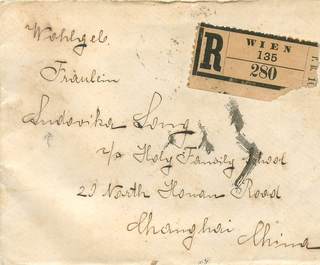 Wohlgeb.
Fräulein
Ludovika Long
c/o Holy Family School
29 North Honan Road
Shanghai
China
R
WIEN
135
280